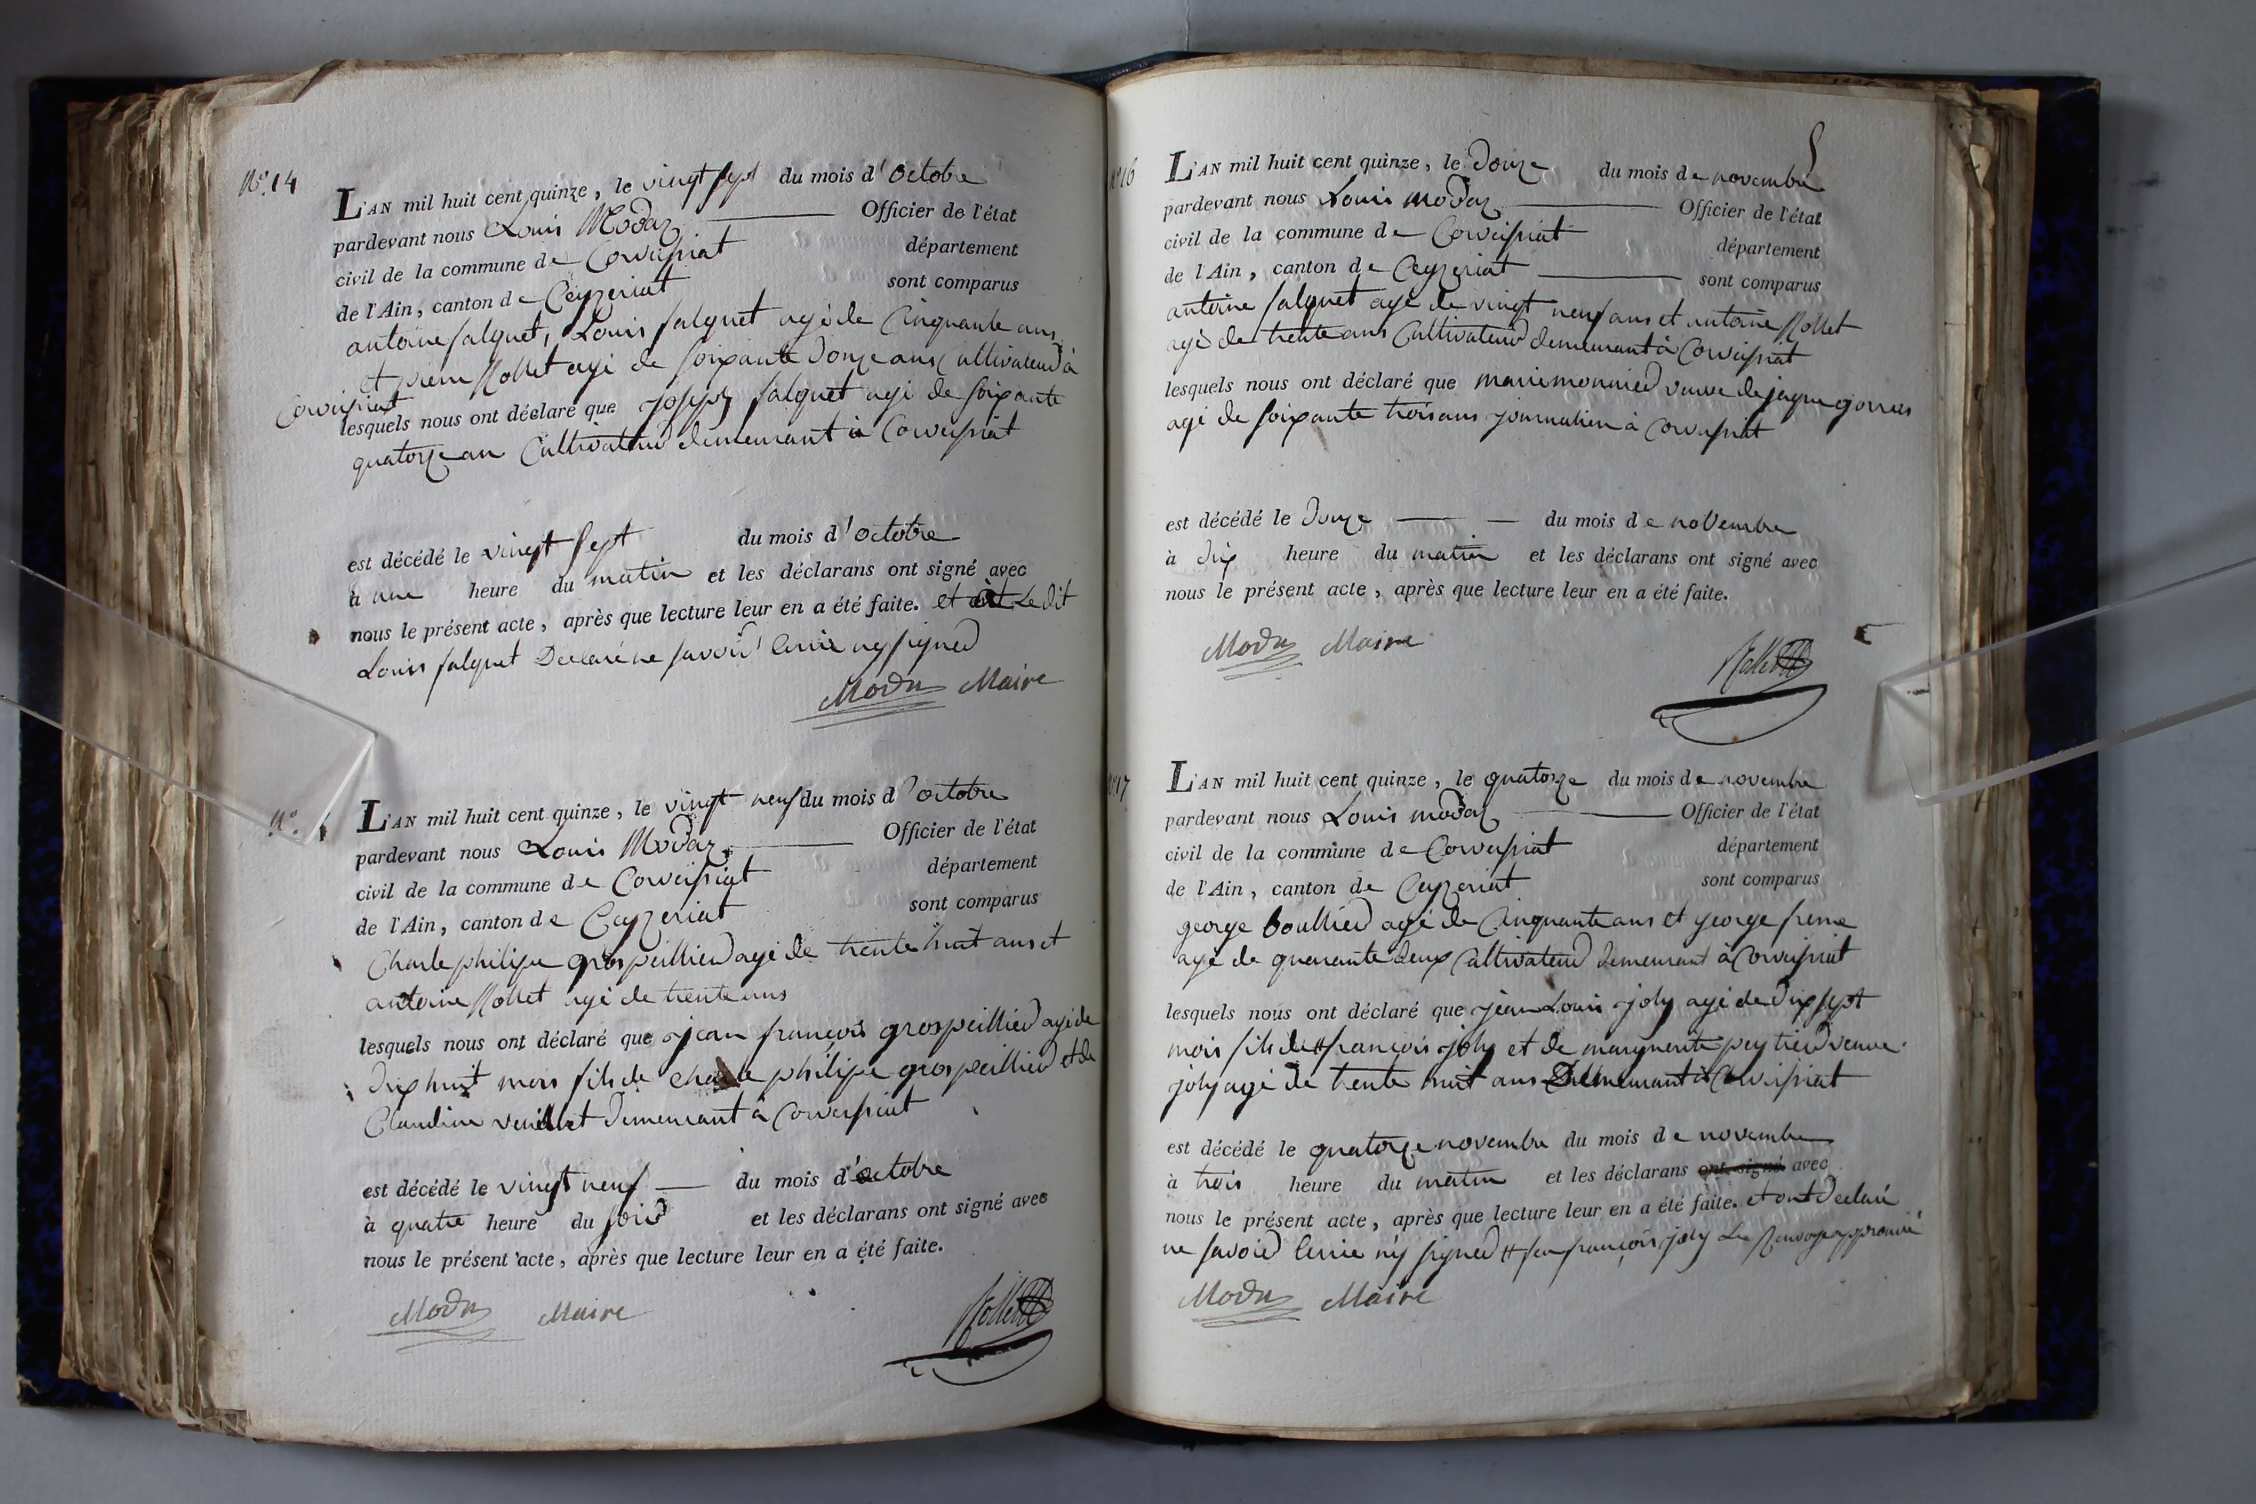 N.° 14
L'AN mil huit cent quinze, le vingt sept du mois d'octobre
pardevant nous Louis Modaz Officier de l'état
civil de la commune de Corveissiat département
de l'Ain, canton de Ceyzeriat sont comparus
antoine salquet, Louis salquet agé de Cinquante ans
et pierre Rollet agé de soixante douze ans Cultivateur à
Corveissiat
lesquels nous ont déclaré que joseph salquet agé de soixante
quatorze an Cultivateur demeurant à Corveissiat
est décédé le vingt sept du mois d'octobre
à une heure du matin et les déclarans ont signé avec
nous le présent acte, après que lecture leur en a été faite. et Le dit
Louis salquet Declaré ne savoir Cerire ny signer
Modas Maire
N.°
L'AN mil huit cent quinze, le vingt neuf du mois d'octobre
pardevant nous Louis Modaz Officier de l'état
civil de la commune de Corveissiat département
de l'Ain, canton de Ceyzeriat sont comparus
Charle philipe grospeillier agé de trente huit ans et
antoine Rollet agé de trente ans
lesquels nous ont déclaré que jean françois grospeillier agé de
dix huit mois fils de charle philipe grospeillier et de
Claudine demeurant à Corveissiat
est décédé le vingt neuf du mois d'octobre
à quatre heure du soir et les déclarans ont signé avec
nous le présent acte, après que lecture leur en a été faite.
Modas Maire Rollet
N.° 16
L'AN mil huit cent quinze, le Douze du mois de novembre
pardevant nous Louis modaz Officier de l'état
civil de la commune de Corveissiat département
de l'Ain, canton de Ceyzeriat sont comparus
antoine salquet agé de vingt neuf ans et antoine Rollet
agé de trente ans Cultivateur demeurant à Corveissiat
lesquels nous ont déclaré que marie monnier veuve de jaque
agé de soixante trois ans journalier à Corveissiat
est décédé le Douze du mois de novembre
à dix heure du matin et les déclarans ont signé avec
nous le présent acte, après que lecture leur en a été faite.
Modas Maire
Rollet
N.° 17
L'AN mil huit cent quinze, le quatorze du mois de novembre
pardevant nous Louis modaz Officier de l'état
civil de la commune de Corveissiat département
de l'Ain, canton de Ceyzeriat sont comparus
george boullier agé de Cinquante ans et george
agé de quarante deux Cultivateur demeurant à Corveissiat
lesquels nous ont déclaré que jean Louis joly agé de dix sept
mois fils de # françois joly et de marguerite peytier veuve
joly agé de trente huit ans Demeurant à Corveissiat
est décédé le quatorze novembre du mois de novembre
à trois heure du matin et les déclarans ont signé avec
nous le présent acte, après que lecture leur en a été faite. et ont Declaré
ne savoir Cerire ny signer # feu françois joly Le Renvoye approuvé
Modas Maire